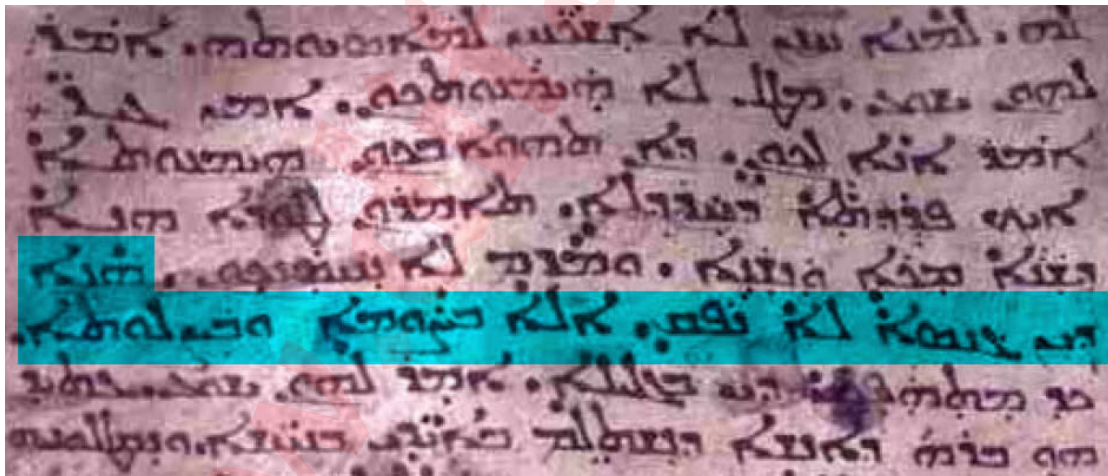 ܠܗ. ܠܡܢܐ ܚܢܢ ܠܐ ܐܫܟܚܢ ܠܡܐܣܝܘܬܗ. ܐܡܪ
ܠܗܘܢ ܝܫܘܥ. ܡܛܠ ܠܐ ܗܝܡܢܘܬܟܘܢ. ܐܡܝܢ ܓܝܪ
ܐܡܪ ܐܢܐ ܠܟܘܢ. ܕܐܢ ܬܗܘܐ ܒܟܘܢ ܗܝܡܢܘܬܐ
ܐܝܟ ܦܪܕܬܐ ܕܚܪܕܠܐ. ܬܐܡܪܘܢ ܠܛܘܪܐ ܗܢܐ
ܕܫܢܐ ܡܟܐ ܘܢܫܢܐ. ܘܡܕܡ ܠܐ ܢܚܣܢܟܘܢ. ܗܢܐ
ܕܝܢ ܓܢܣܐ ܠܐ ܢܦܩ. ܐܠܐ ܒܨܘܡܐ ܘܒܨܠܘܬܐ.
ܟܕ ܡܬܗܦܟܝܢ ܕܝܢ ܒܓܠܝܠܐ. ܐܡܪ ܠܗܘܢ ܝܫܘܥ. ܥܬܝܕ
ܗܘ ܒܪܗ ܕܐܢܫܐ ܕܢܫܬܠܡ ܒܐܝܕܝ ܒܢܝܢܫܐ.